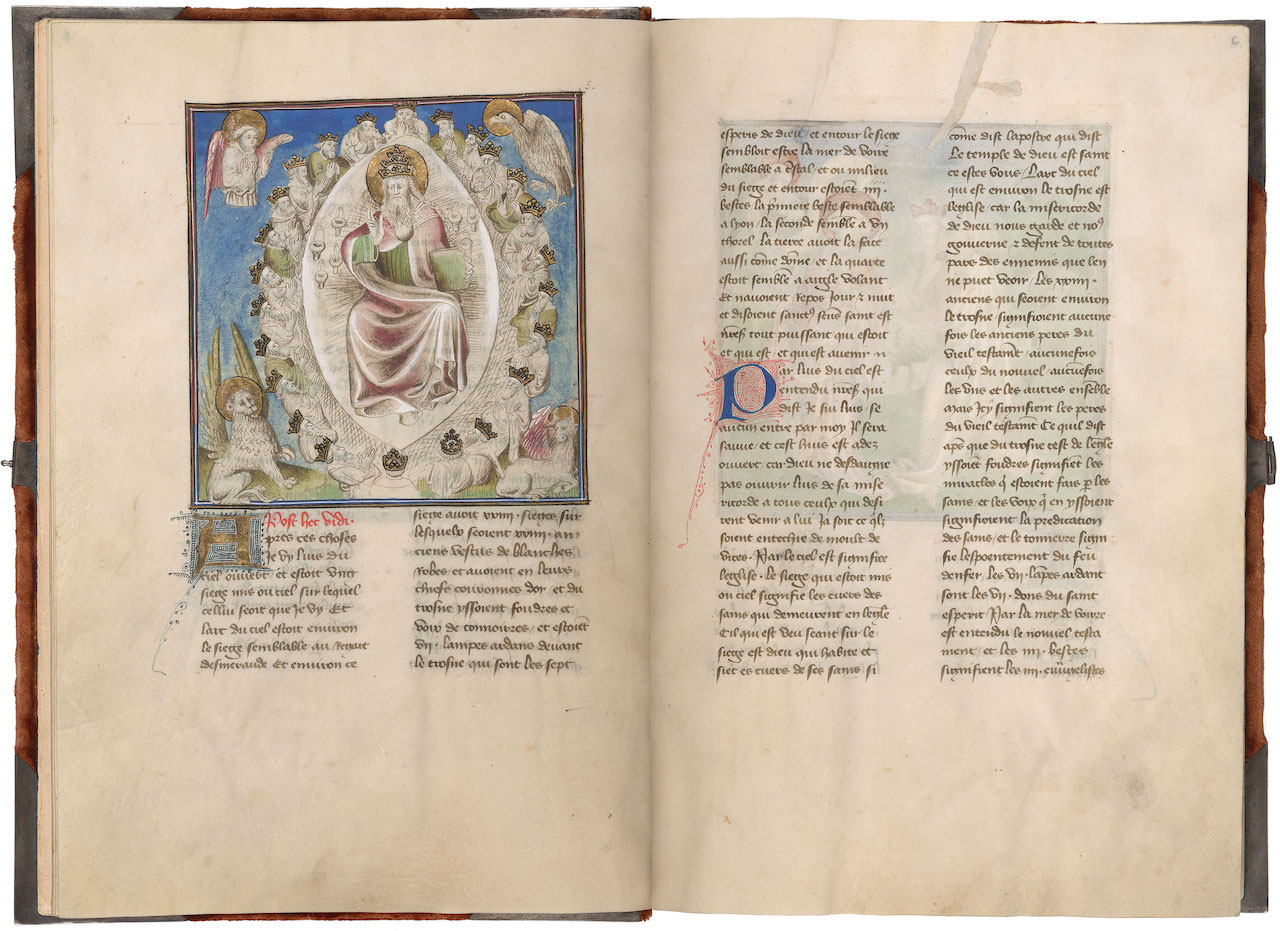 5.
Post hec vidi.
Apres ces choses
Je vy luis du
ciel ouvert et estoit ung
siege mis ou ciel sur lequel
cellui seoit que Je vy Et
larc du ciel estoit environ
le siege semblable au regart
desmeraude Et environ ce
siege avoit xxiiii. sieges sur
lesquelx seoient xxiiii. an
ciens vestus de blanches
Robes et avoient en leurs
chiefs couronnes dor et du
trosne yssoient foudres et
voix de tonnoirres et estoiẽt
vii. lampes ardans devant
le trosne qui sont les sept
6
esperis de dieu et entour le siege
sembloit estre la mer de voire
semblable a cristal et ou milieu
du siege et entour estoiẽt iiii.
bestes la p̃miere beste semblable
a lyon la seconde semble a ung
thorel la tierce avoit la face
aussi cõme dõme et la quarte
estoit semblẽ a aigle volant
Et navoient Repos Jour z nuit
et disoient sanctus sctũs saint est
nr̃es tout puissant qui estoit
et qui est et qui est avenir
Par luis du ciel est
entendu nr̃es qui
dist Je sui luis se
aucun entre par moy Il sera
sauve et cest huis est adez
ouvert car dieu ne desdaigne
pas ouvrir luis de sa mise
ricorde a tous ceulx qui desi
rent venir a lui Ja soit ce qilz
soient entechie de moult de
vices. Par le ciel est signifie
leglise. le siege qui estoit mis
ou ciel signifie les cuers des
sains qui demeurent en leglẽ
Cil qui est veu seant sur le
siege est dieu qui habite et
siet es cuers de ses sains si
cõme dist lapostre qui dist
Le temple de dieu est saint
ce estes vous Larc du ciel
qui est environ le trosne est
leglise car la misericorde
de dieu nous garde et noꝰ
gouverne z defent de toutes
pars des ennemis que len
ne puet veoir Les xxiiii.
anciens qui seoient environ
le trosne signifioient aucune
fois les anciens peres du
vieil testamẽt aucunefois
ceulx du nouvel aucũefois
les uns et les autres ensẽble
Mais Icy signifient les peres
du vieil testamt̃ Ce quil dist
ap̃s que du trosne cest de leglẽ
yssoiẽt foudres signifiẽt les
miracles q̃ estoient fais p̱ les
sains et les voix q̃ en yssoient
signifioient la predication
des sains et le tonnoirre signi
fie lespoentement du feu
denfer. les vii. lãpes ardant
sont les vii. dons du saint
esperit Par la mer de voirre
est entendu le nouvel testa
ment et les iiii. bestes
signifient les iiii. euũgelistes